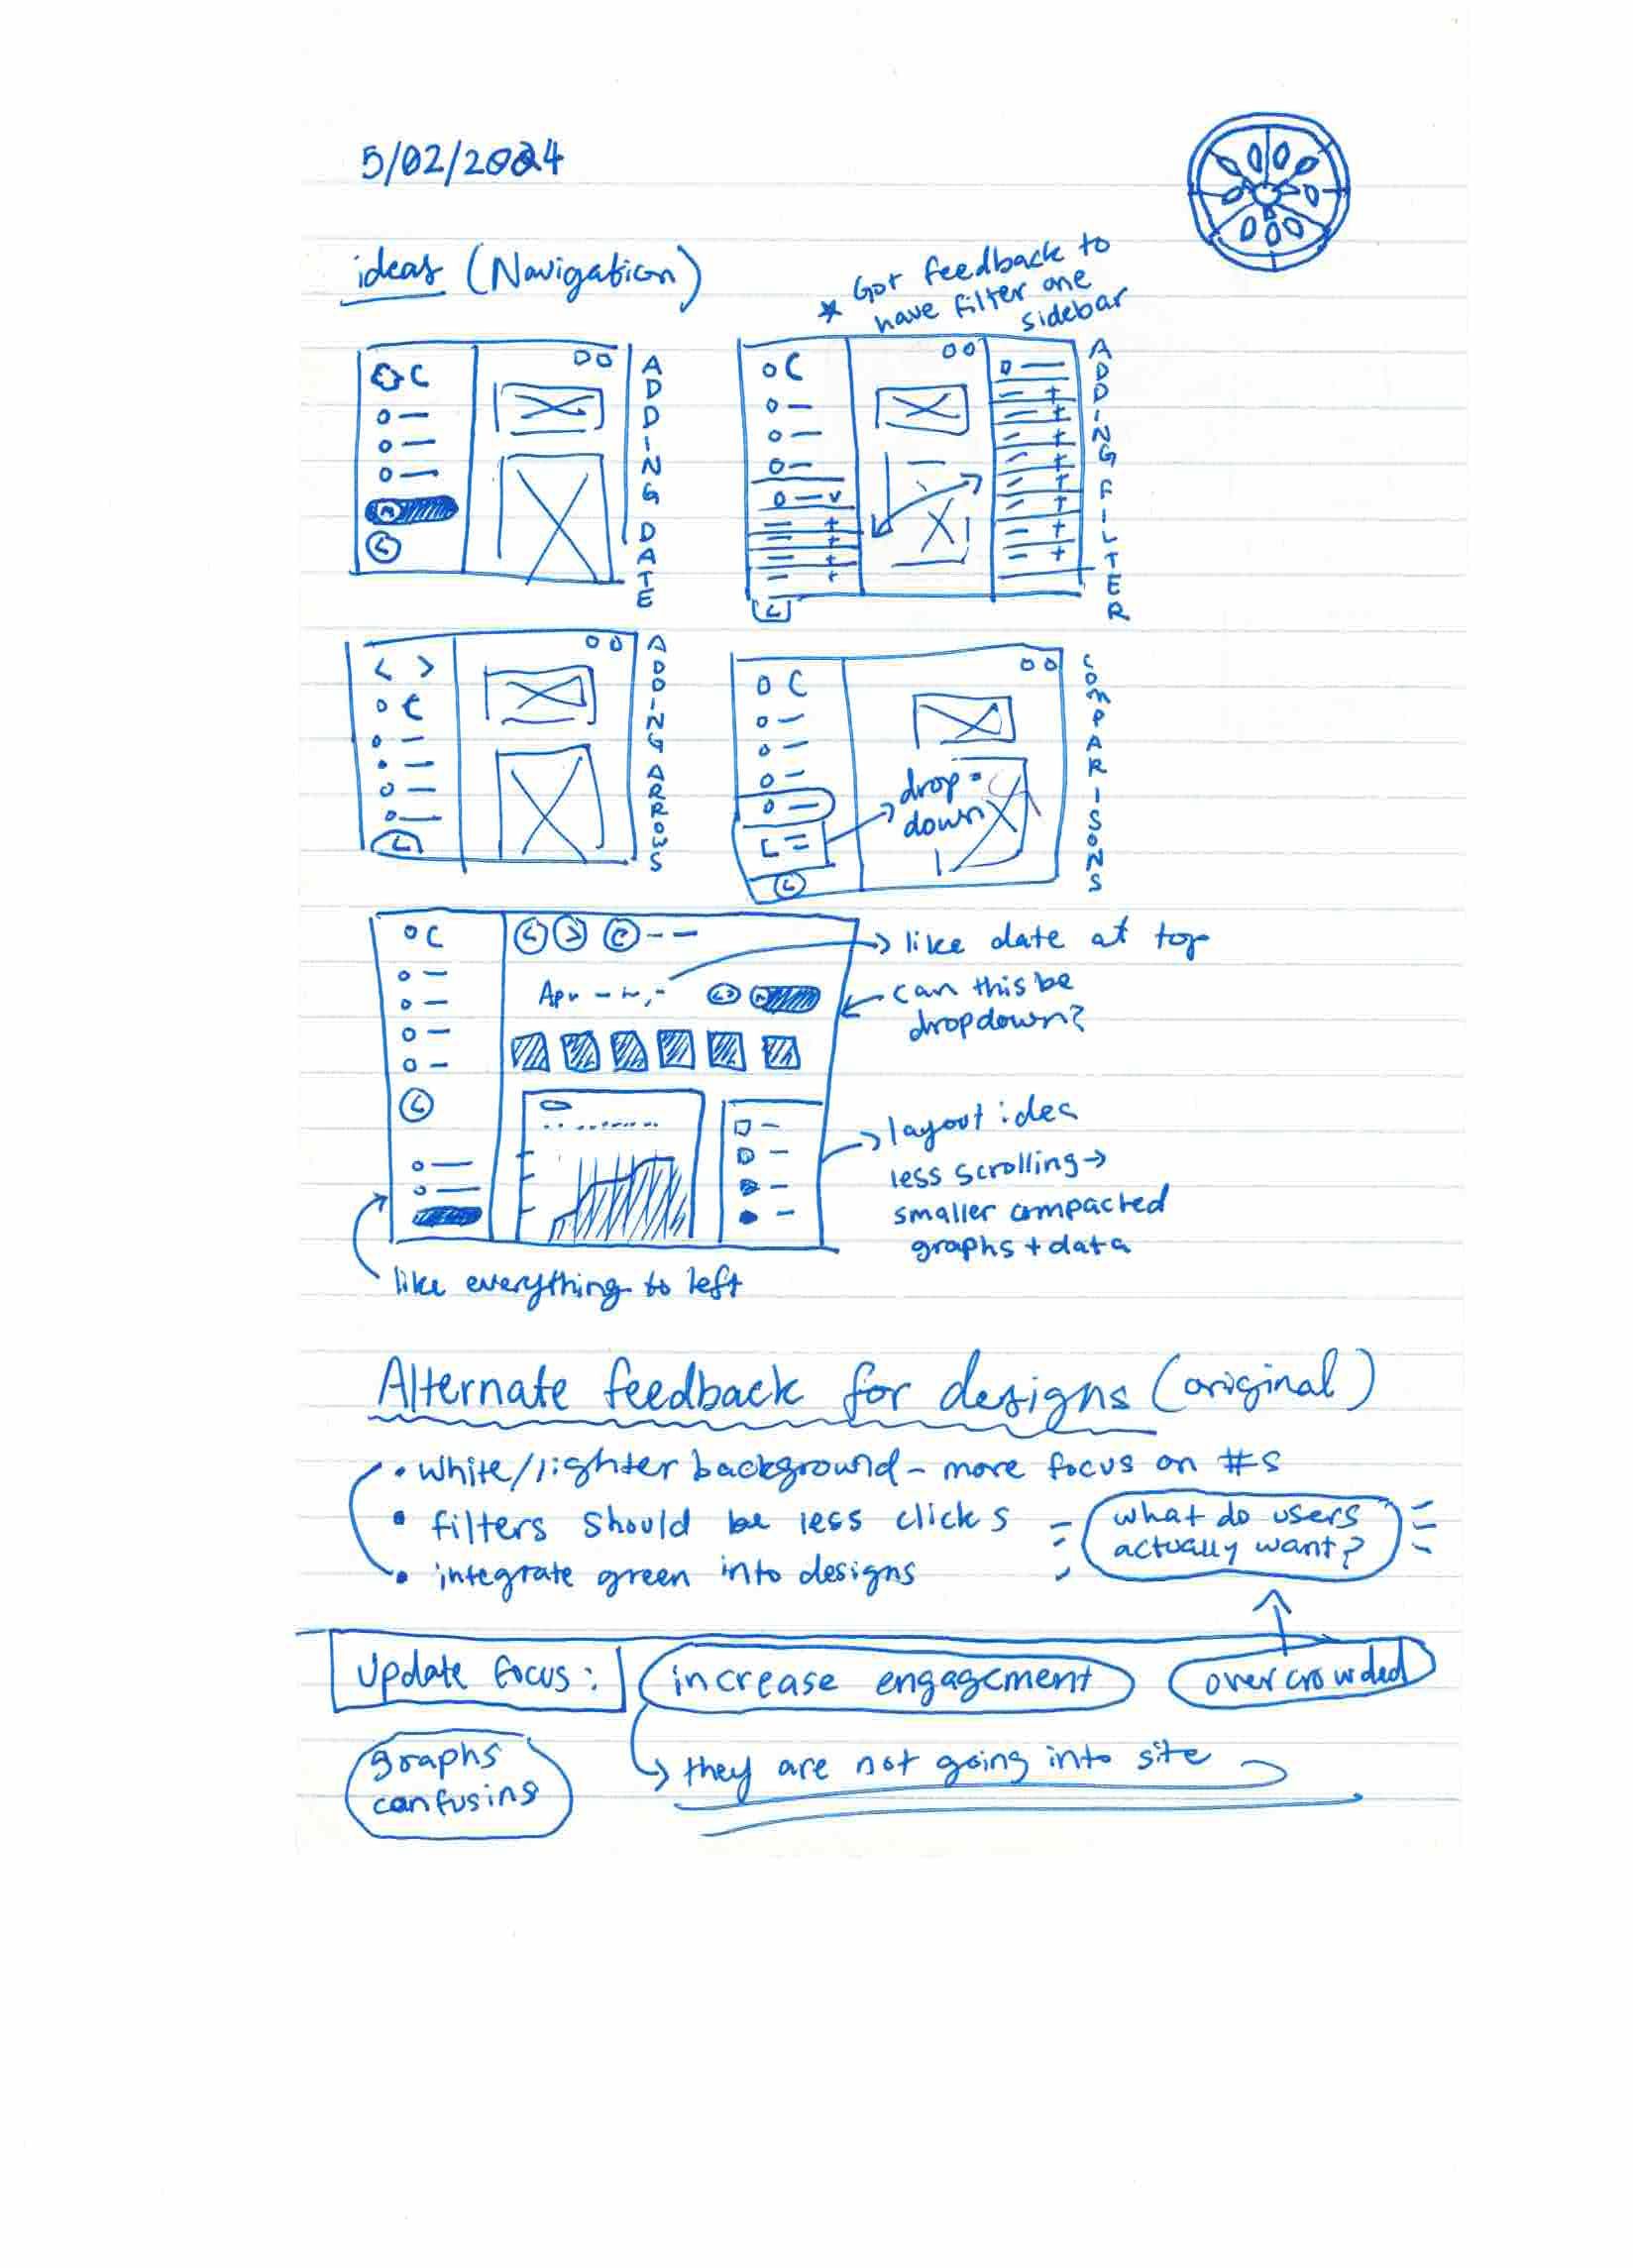 5/02/2024
ideas (Navigation)
* Got feedback to
have filter one
sidebar
C
ADDING DATE
C
ADDING FILTER
L
< >
C
ADDING ARROWS
L
C
drop-
down
COMPARISONS
C
< > C --
Apr
like date at top
can this be
dropdown?
layout idea
less scrolling →
smaller compacted
graphs + data
like everything to left
Alternate feedback for designs (original)
• white/lighter background - more focus on #s
• filters should be less clicks
• integrate green into designs
what do users
actually want?
Update focus:
increase engagement
overcrowded
they are not going into site
graphs
confusing